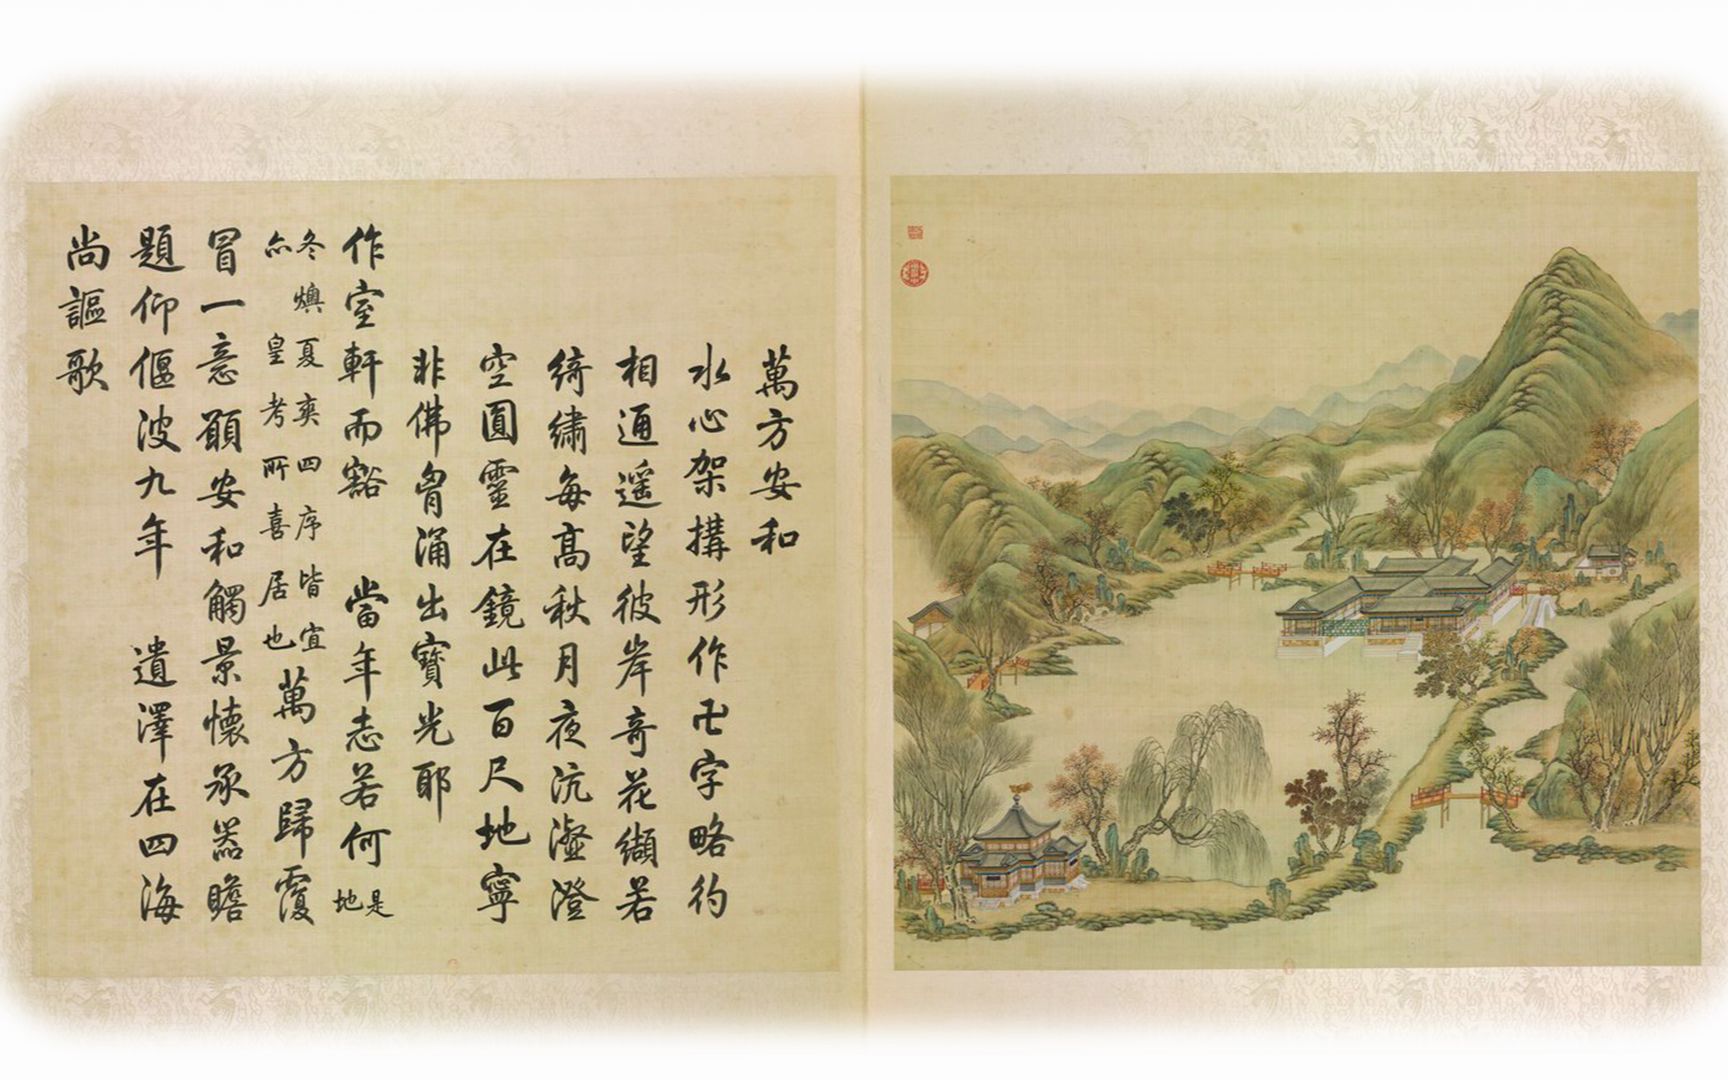 萬方安和
水心架搆形作卍字略彴
相通遥望彼岸奇花纈若
綺繡每髙秋月夜沆瀣澄
空圓靈在鏡此百尺地寧
非佛胷涌出寶光耶
作室軒而豁 當年志若何 是地
冬燠夏爽四序皆宜亦皇考所喜居也 萬方歸覆
冒一意願安和觸景懷承器瞻
題仰偃波九年 遺澤在四海
尚謳歌